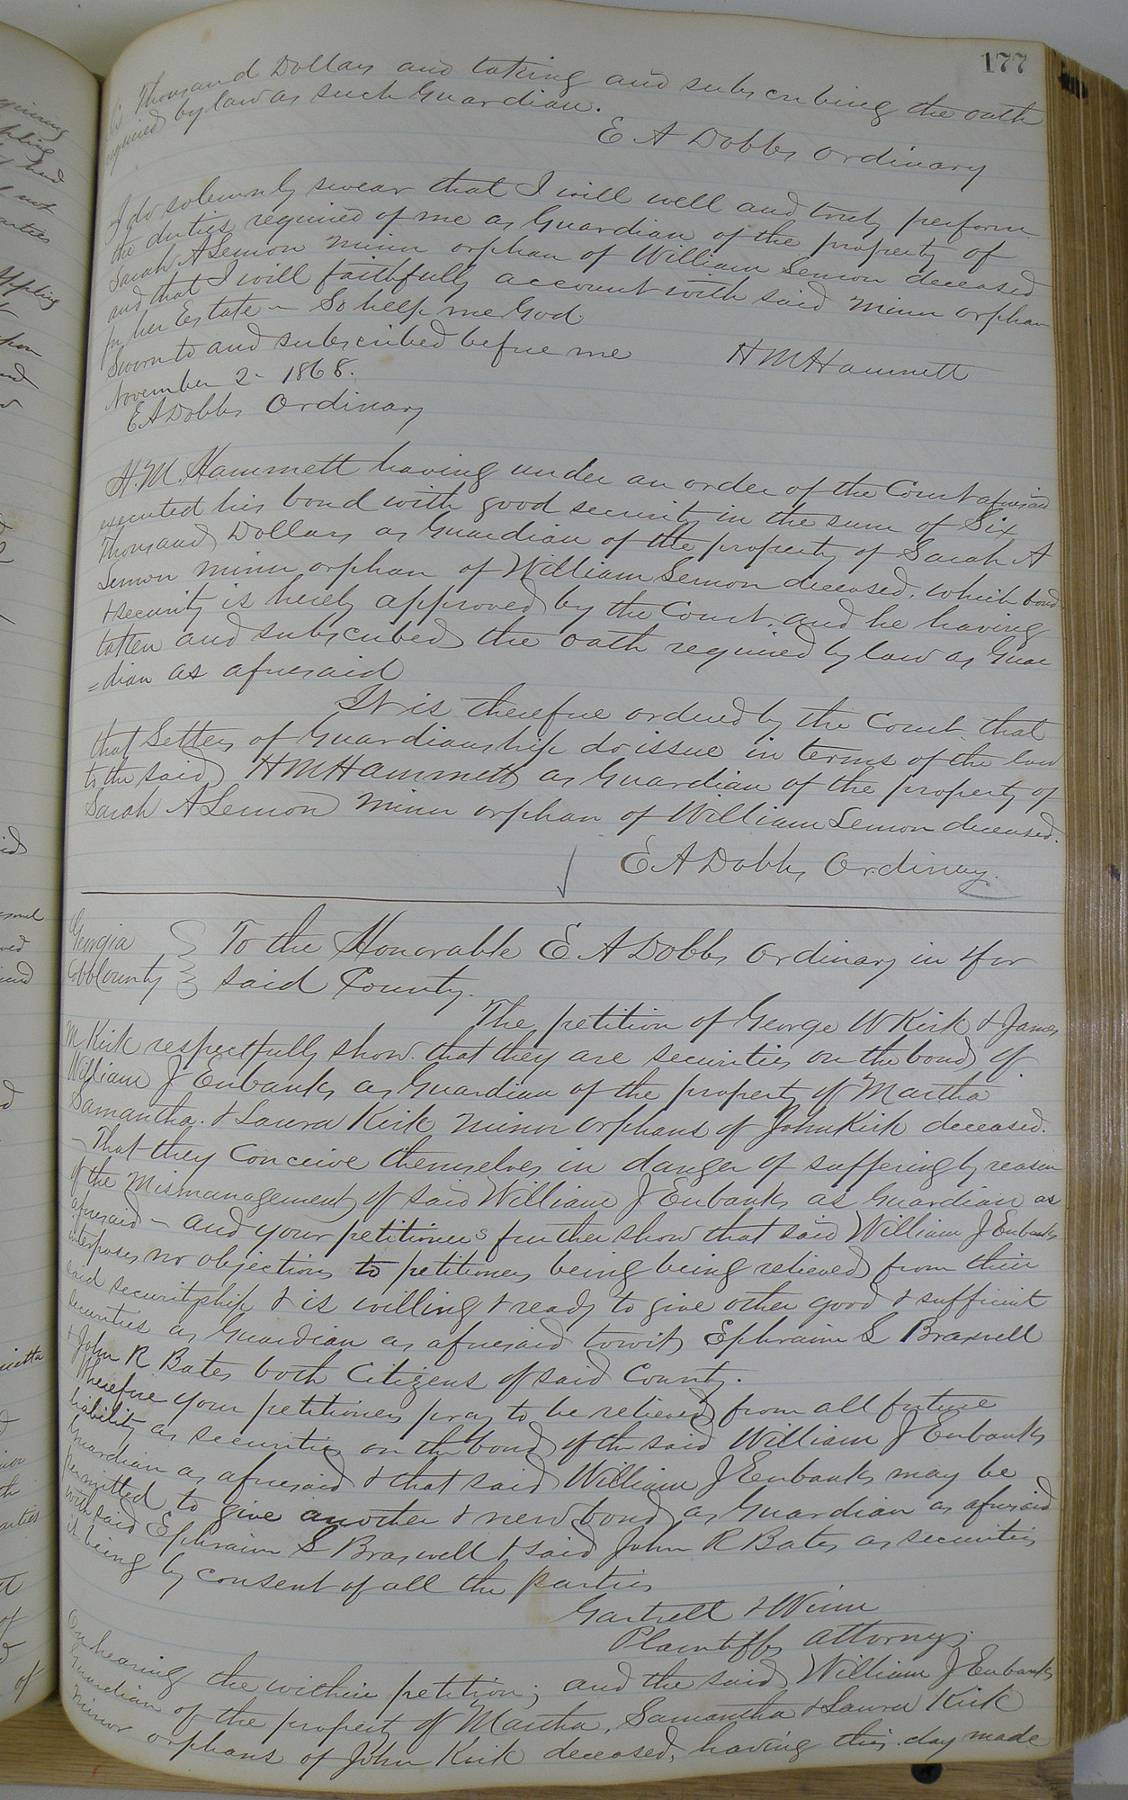 177
Six Thousand Dollars and taking and subscribing the oath
required by law as such Guardian.
E A Dobbs Ordinary
I do solemnly swear that I will well and truly perform
the duties required of me as Guardian of the property of
Sarah A Lemon minor orphan of William Lemon deceased
and that I will faithfully account with said minor orphan
for her Estate - So help me God
Sworn to and subscribed before me H M Hammett
November 2 - 1868.
E A Dobbs Ordinary
H. M. Hammett having under an order of the Court aforesaid
executed his bond with good security in the sum of Six
Thousand Dollars as Guardian of the property of Sarah A
Lemon minor orphan of William Lemon deceased, which bond
& security is hereby approved by the Court. and he having
taken and subscribed the oath required by law as Guar
=dian as aforesaid
It is therefore ordered by the Court that
that Letters of Guardianship do issue in terms of the law
to the said H M Hammett as Guardian of the property of
Sarah A Lemon minor orphan of William Lemon deceased.
E A Dobbs Ordinary.
Georgia
Cobb County
To the Honorable E A Dobbs Ordinary in & for
said County.
The petition of George W Kirk & James
M Kirk respectfully show. that they are securities on the bond of
William J Eubanks as Guardian of the property of Martha
Samantha. & Laura Kirk minor orphans of John Kirk deceased.
- That they conceive themselves in danger of suffering by reason
of the mismanagement of said William J Eubanks as Guardian as
aforesaid - and your petitioners further show that said William J Eubanks
interposes no objections to petitioners being being relieved from their
said securityship & is willing & ready to give other good & sufficient
securities as Guardian as aforesaid towit, Ephraim S Braswell
& John R Bates both Citizens of said County.
Wherefore your petitioners pray to be relieved from all future
liability as securities on the bond of the said William J Eubanks
Guardian as aforesaid & that said William J Eubanks may be
permitted to give another & new bond as Guardian as aforesaid
with said Ephraim S Braswell & said John R Bates as securities
it being by consent of all the parties
Gartrell & Winn
Plaintiffs attorneys.
On hearing the within petition; and the said William J Eubanks
Guardian of the property of Martha, Samantha & Laura Kirk
minor orphans of John Kirk deceased, having this day made